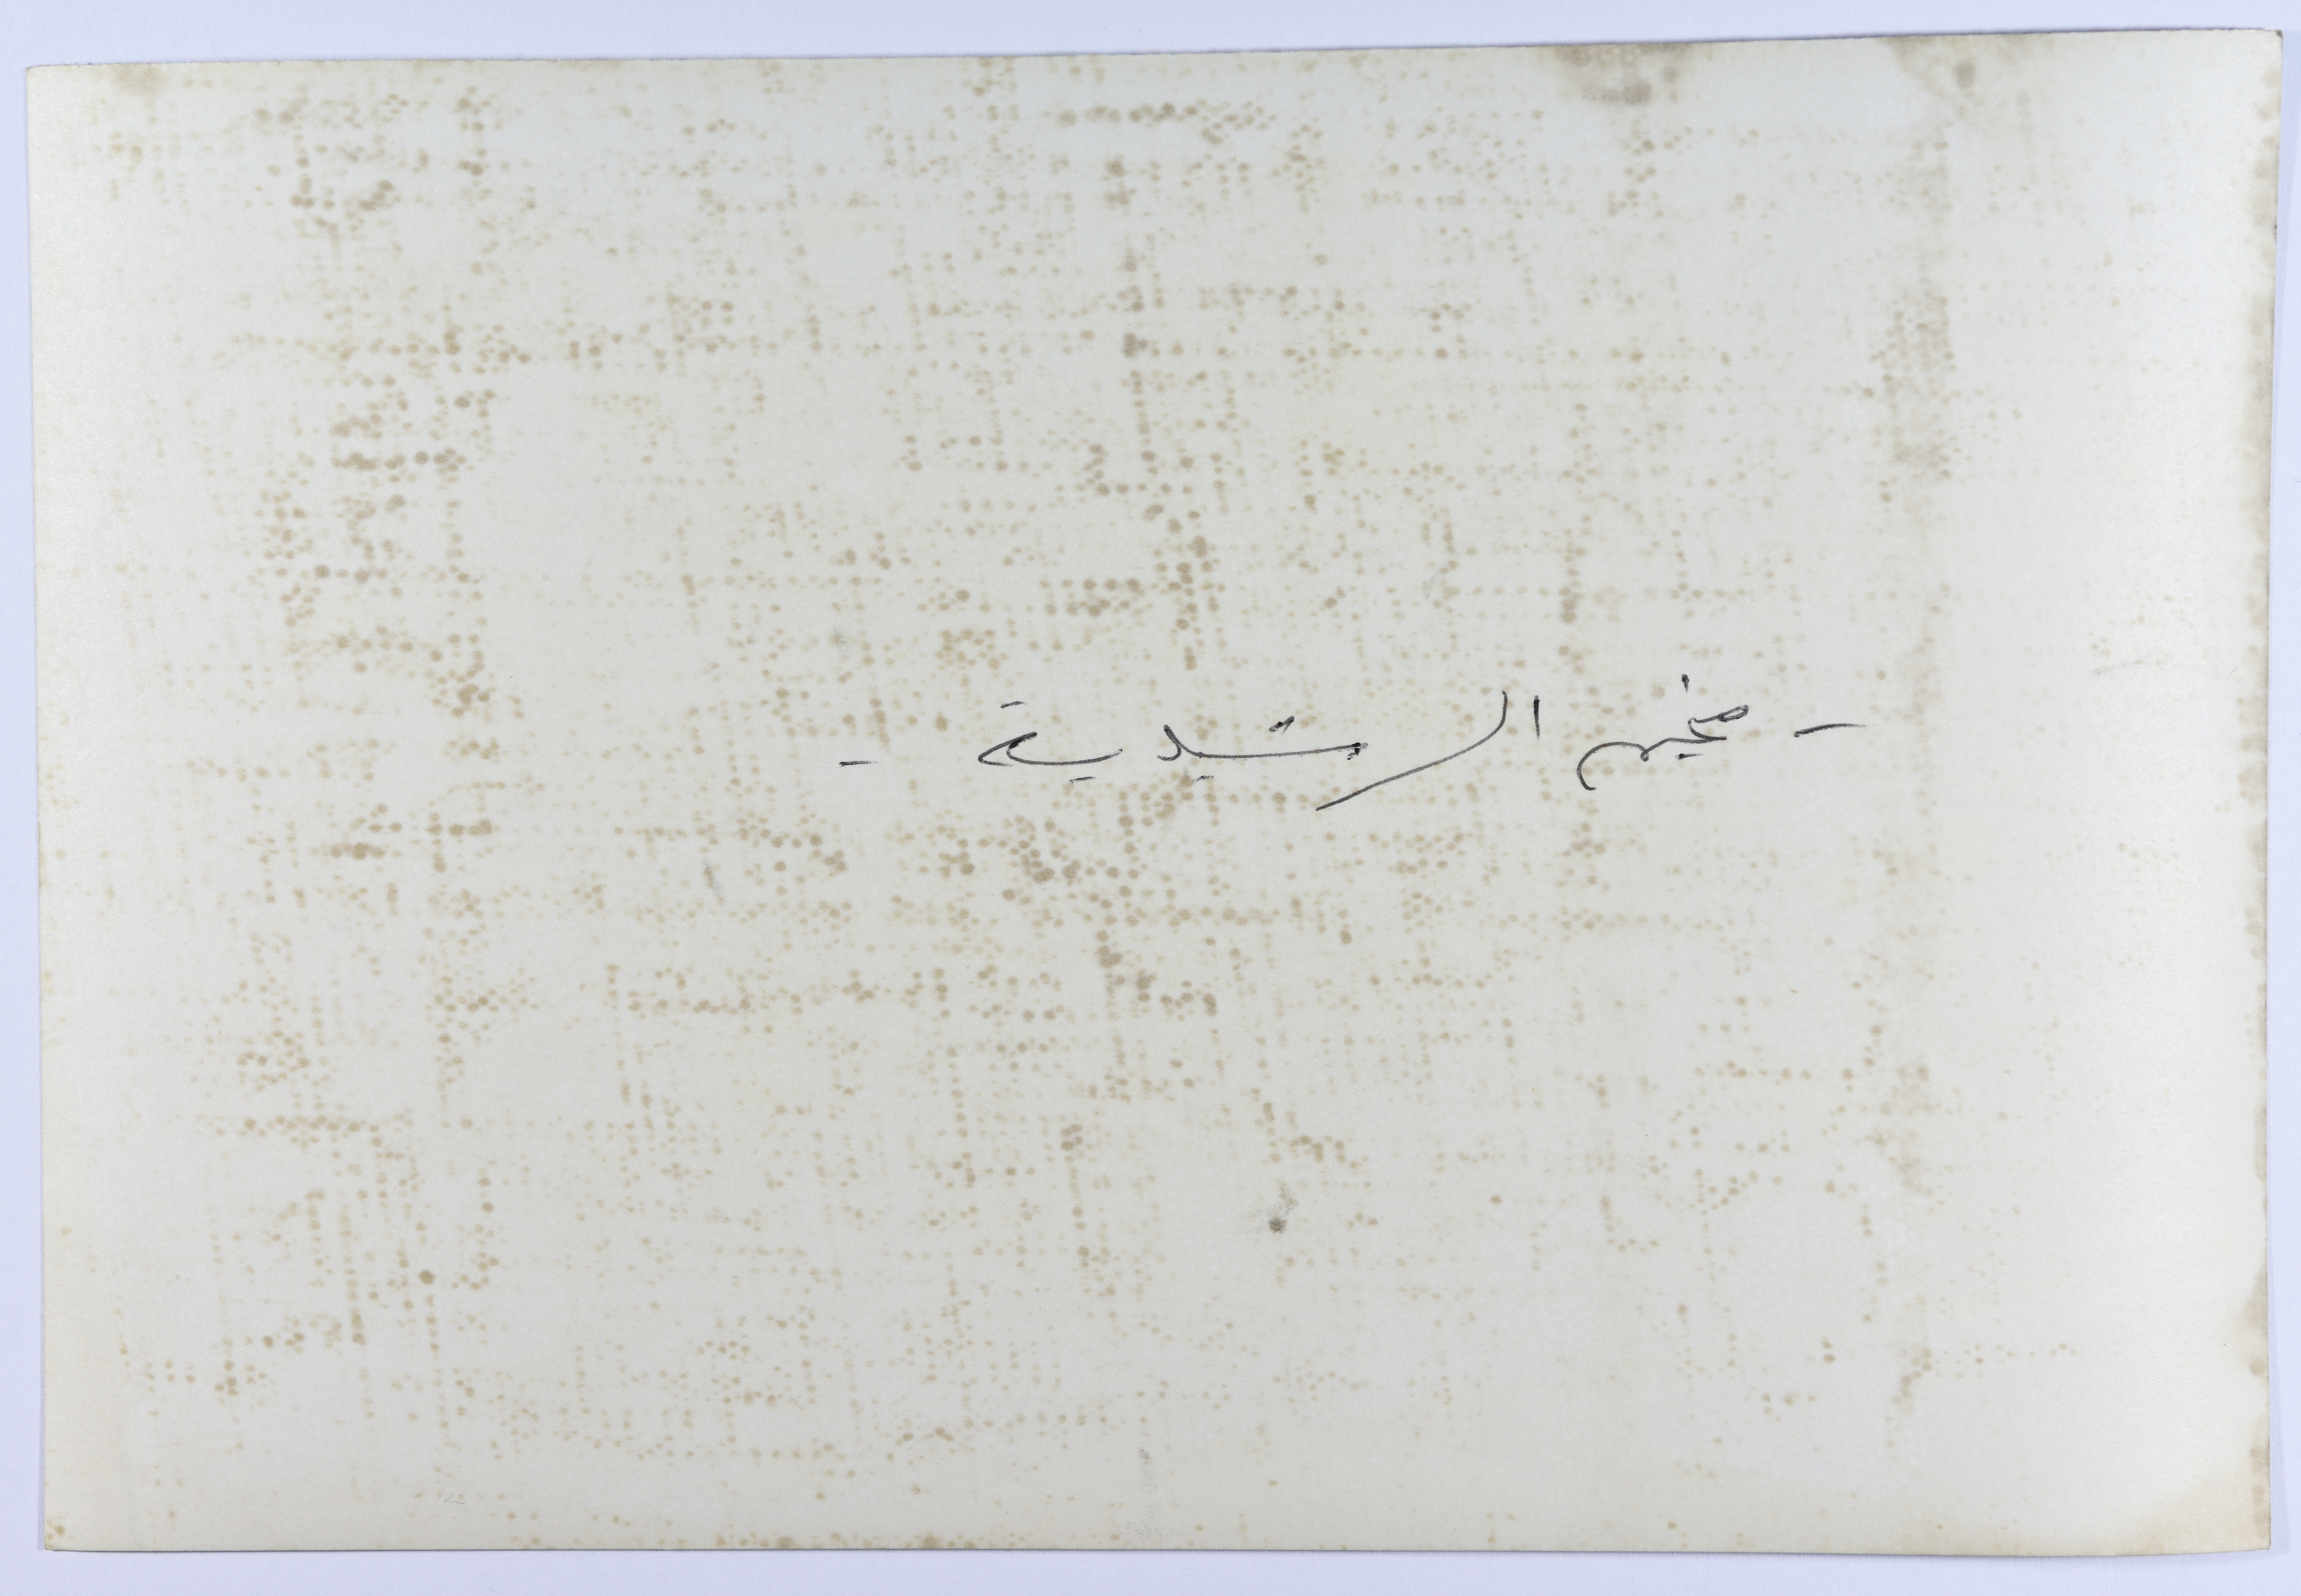 - مخيم الرشيدية -